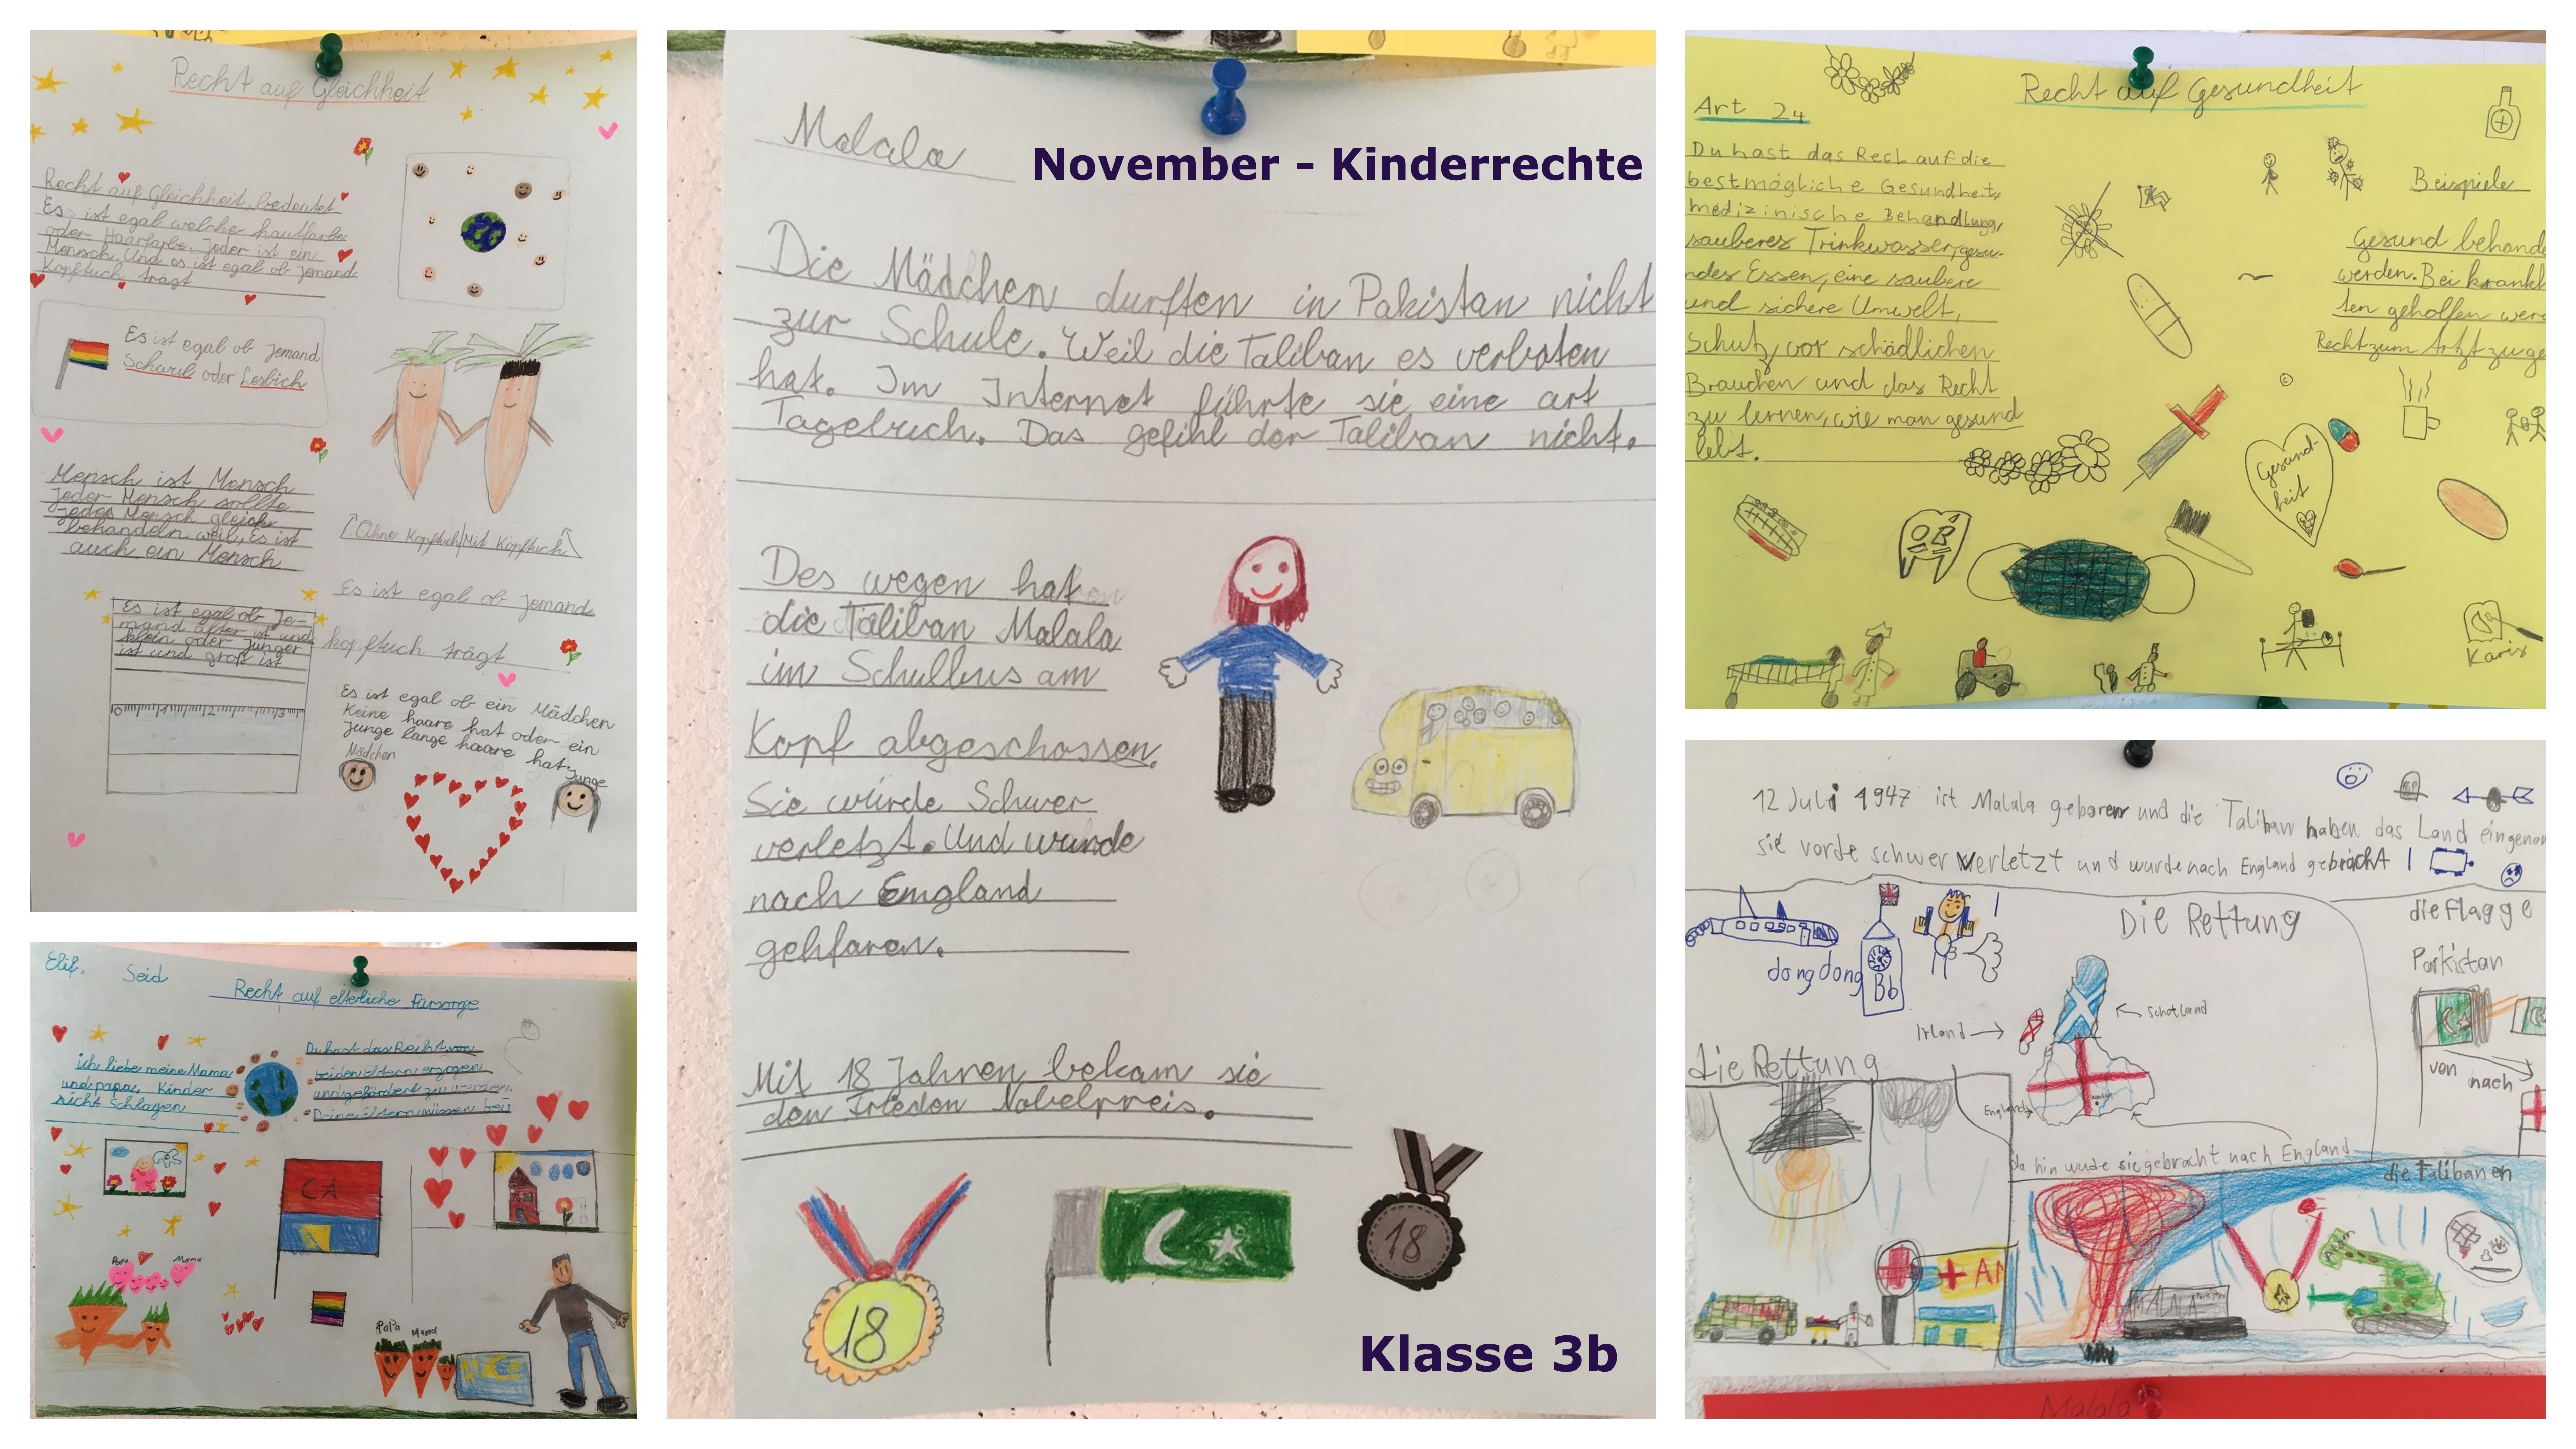 Recht auf Gleichheit
Recht auf Gleichheit, bedeutet
Es ist egal welche hautfarbe
oder Haarfarbe. Jeder ist ein
Mensch. Und es ist egal ob jemand
Kopftuch trägt
Es ist egal ob Jemand
Schwul oder Lesbich
Mensch ist Mensch
Jeder Mensch sollte
jedes Mensch gleich
behandeln weil, Es ist
auch ein Mensch
Ohne Kopftuch/Mit Kopftuch
Es ist egal ob Jemand
kopftuch trägt
Es ist egal ob Je-
mand älter ist und
klein oder Junger
ist und groß ist
0 1 2 3
Es ist egal ob ein Mädchen
Keine haare hat oder ein
Junge lange haare hat
Mädchen
Junge
Elif, Seid
Recht auf elterliche Fürsorge
ich liebe meine Mama
und papa, Kinder
nicht Schlagen
Du hast das Recht von
beiden Eltern erzogen
und gefördert zu
Deine Eltern müssen bei
Papa Mama
PaPa Mama
Malala
November - Kinderrechte
Die Mädchen durften in Pakistan nicht
zur Schule. Weil die Taliban es verboten
hat. Im Internet führte sie eine art
Tagebuch. Das gefihl den Taliban nicht.
Des wegen hat
die Taliban Malala
im Schulbus am
Kopf abgeschossen.
Sie würde Schwer
verletzt. Und wurde
nach England
gehfaren.
Mit 18 Jahren bekam sie
den Frieden Nobelpreis.
18
18
Klasse 3b
Recht auf Gesundheit
Art 24
Du hast das Rech auf die
bestmögliche Gesundheit,
medizinische Behandlung,
sauberes Trinkwasser, gesun-
ndes Essen, eine saubere
und sichere Umwelt,
Schutz vor schädlichen
Bräuchen und das Recht
zu lernen, wie man gesund
lebt.
Beispiele
Gesund behande
werden. Bei krankh
ten geholfen werd
Recht zum Artzt zu ge
Gesund-
heit
OB
Karis
12 Juli 1947 ist Malala geboren und die Taliban haben das Land eingenom
sie vorde schwer verletzt und wurde nach England gebracht
dong dong
Bb
Die Rettung
die Flagge
Parkistan
von nach
Irland
Schotland
England
da hin wude sie gebracht nach England
die Rettung
die Talibanen
MALALA
Malala